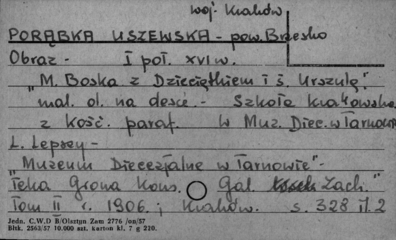 woj. Kraków
PORĄBKA USZEWSKA - pow. Brzesko
Obraz - I poł. XVI w.
"M. Boska z Dzieciątkiem i ś. Urszulą."
mal. ol. na desce. - Szkoła Krakowska
z kość. paraf. W Muz. Diec. w Tarnowie
L. Lepszy -
"Muzeum Diecezjalne w Tarnowie" -
Teka Grona Kons. Gal. Zach."
Tom II r. 1906. i Kraków. s. 328 il. 2
Jedn. C.W.D B/Olsztyn Zam 2776 /oo/57
Bltk. 2563/57 10.000 szt. karton kl. 7 g 220.